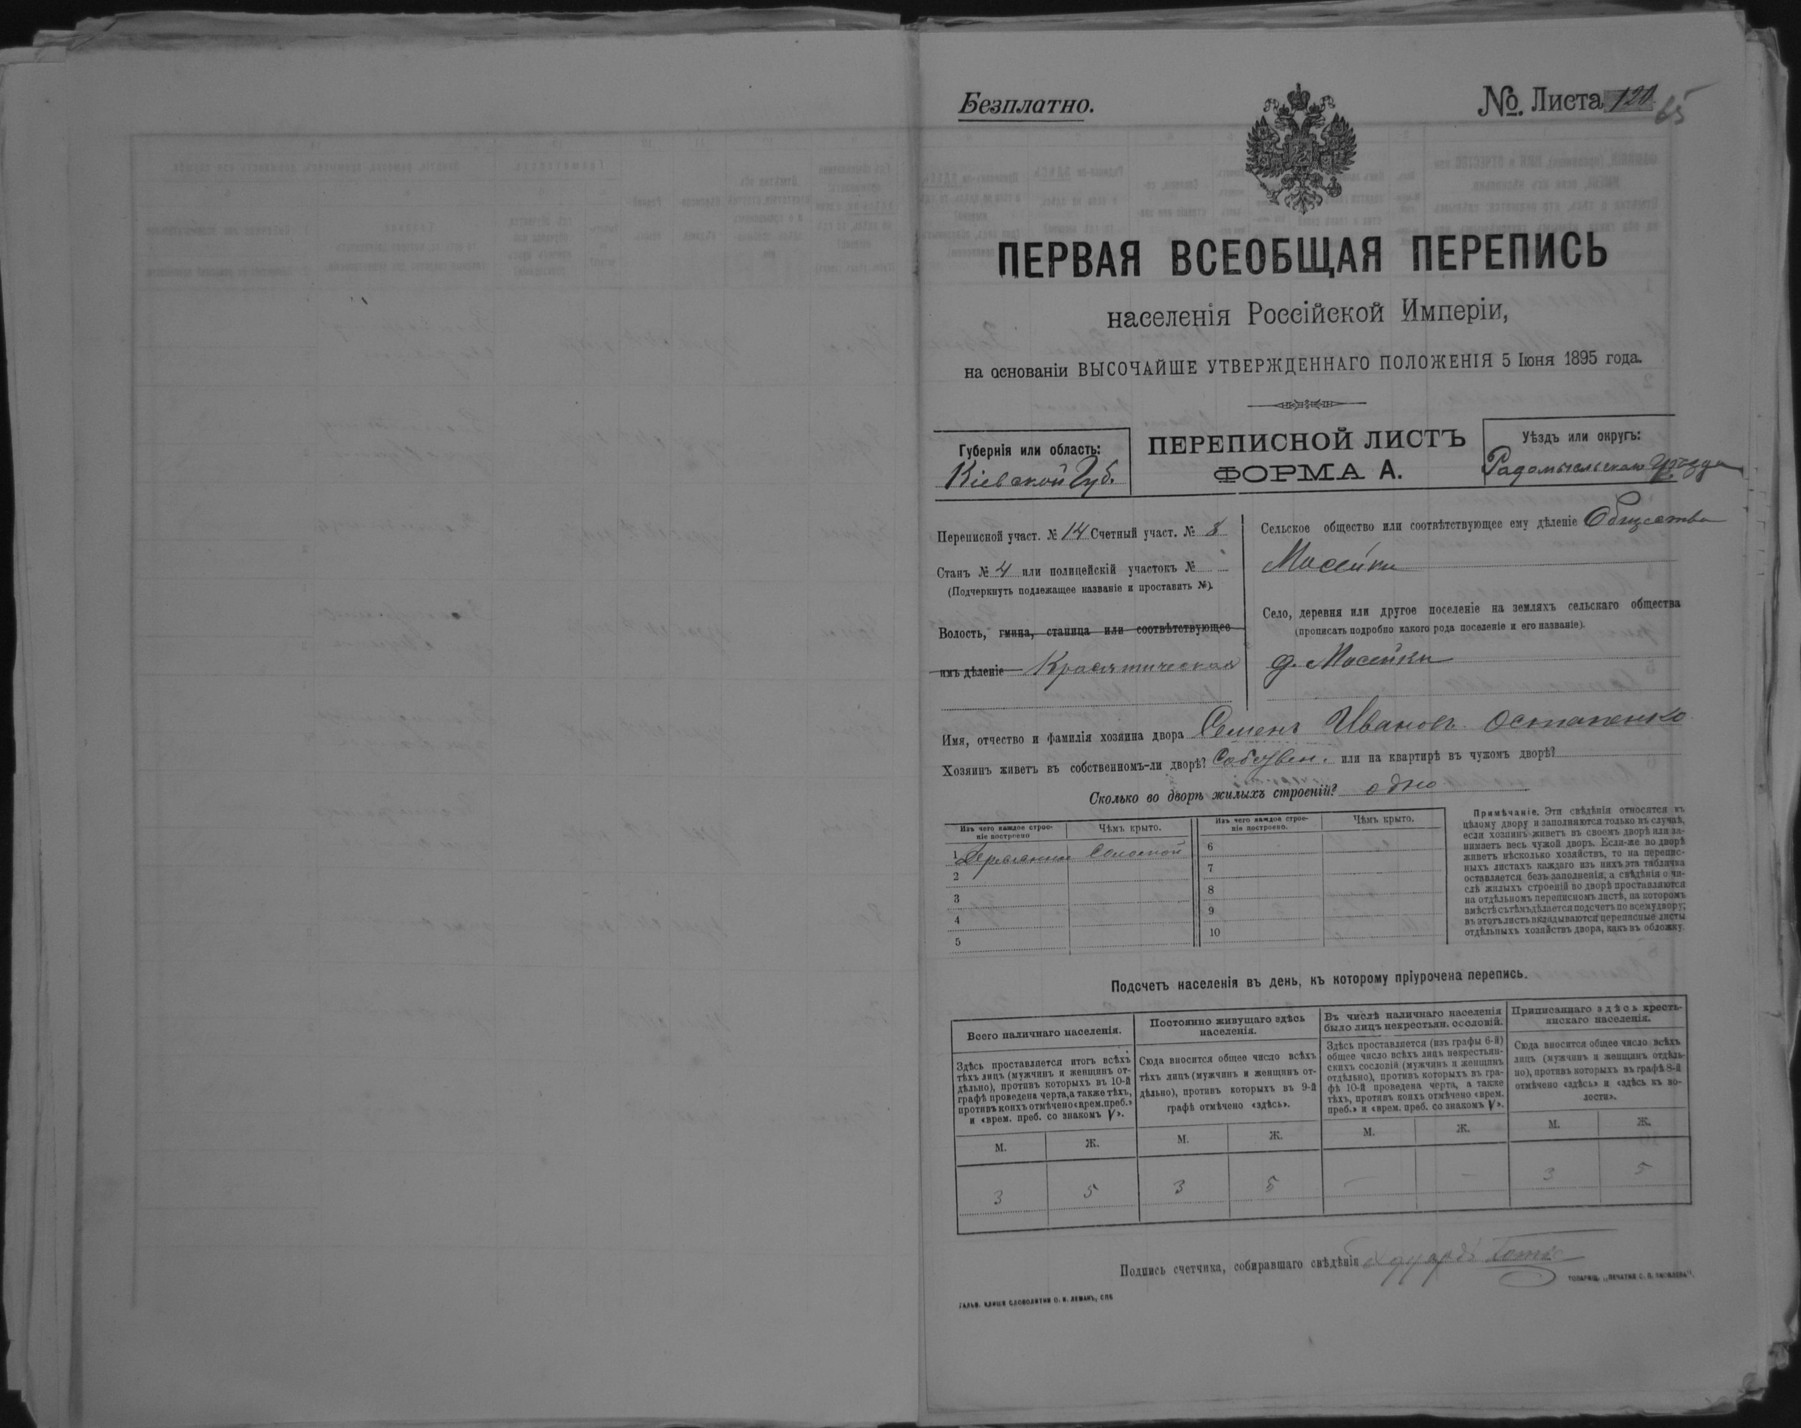 Безплатно.
№. Листа 120 65
ПЕРВАЯ ВСЕОБЩАЯ ПЕРЕПИСЬ
населенія Россійской Имперіи,
на основаніи ВЫСОЧАЙШЕ УТВЕРЖДЕННАГО ПОЛОЖЕНІЯ 5 Іюня 1895 года.
Губернія или область:
Кіевской Губ.
ПЕРЕПИСНОЙ ЛИСТЪ
ФОРМА А.
Уѣздъ или округъ:
Радомысльскаго Уѣзда
Переписной участ. № 14 Счетный участ. № 8
Станъ № 4 или полицейскій участокъ №
(Подчеркнуть подлежащее названіе и проставить №).
Волость, гмина, станица или соотвѣтствующее
имъ дѣленіе Красятическая
Сельское общество или соотвѣтствующее ему дѣленіе Общество
Масейки
Село, деревня или другое поселеніе на земляхъ сельскаго общества
(прописать подробно какого рода поселеніе и его названіе).
д. Масейки
Имя, отчество и фамилія хозяина двора Семенъ Ивановъ Остапенко
Хозяинъ живетъ въ собственномъ-ли дворѣ? или на квартирѣ въ чужомъ дворѣ?
Сколько во дворѣ жилыхъ строеній? одно
Изъ чего каждое строе-
ніе построено
Чѣмъ крыто.
Изъ чего каждое строе-
ніе построено.
Чѣмъ крыто.
1 Деревянное Соломой
2
3
4
5
6
7
8
9
10
Примѣчаніе. Эти свѣдѣнія относятся къ
цѣлому двору и заполняются только въ случаѣ,
если хозяинъ живетъ въ своемъ дворѣ или за-
нимаетъ весь чужой дворъ. Если-же во дворѣ
живетъ нѣсколько хозяйствъ, то на перепис-
ныхъ листахъ каждаго изъ нихъ эта табличка
оставляется безъ заполненія, а свѣдѣнія о чи-
слѣ жилыхъ строеній во дворѣ проставляются
на отдѣльномъ переписномъ листѣ, на которомъ
вмѣстѣ съ тѣмъ дѣлается подсчетъ по всему двору;
въ этотъ листъ вкладываются переписные листы
отдѣльныхъ хозяйствъ двора, какъ въ обложку.
Подсчетъ населенія въ день, къ которому пріурочена перепись.
Всего наличнаго населенія.
Здѣсь проставляется итогъ всѣхъ
тѣхъ лицъ (мужчинъ и женщинъ от-
дѣльно), противъ которыхъ въ 10-й
графѣ проведена черта, а также тѣхъ,
противъ коихъ отмѣчено «врем. преб.»
и «врем. преб. со знакомъ V».
Постоянно живущаго здѣсь
населенія.
Сюда вносится общее число всѣхъ
тѣхъ лицъ (мужчинъ и женщинъ от-
дѣльно), противъ которыхъ въ 9-й
графѣ отмѣчено «здѣсь».
Въ числѣ наличнаго населенія
было лицъ некрестьян. сословій.
Здѣсь проставляется (изъ графы 6-й)
общее число всѣхъ лицъ некрестьян-
скихъ сословій (мужчинъ и женщинъ
отдѣльно), противъ которыхъ въ гра-
фѣ 10-й проведена черта, а также
тѣхъ, противъ коихъ отмѣчено «врем.
преб.» и «врем. преб. со знакомъ V».
Приписаннаго здѣсь кресть-
янскаго населенія.
Сюда вносится общее число всѣхъ
лицъ (мужчинъ и женщинъ отдѣль-
но), противъ которыхъ въ графѣ 8-й
отмѣчено «здѣсь» и «здѣсь въ во-
лости».
М. Ж. М. Ж. М. Ж. М. Ж.
3 5 3 5 — — 3 5
Подпись счетчика, собиравшаго свѣдѣнія
ТОВАРИЩ. „ПЕЧАТНЯ С. П. ЯКОВЛЕВА“.
ГАЛЬВ. КЛИШЕ СЛОВОЛИТНИ О. И. ЛЕМАНЪ, СПБ